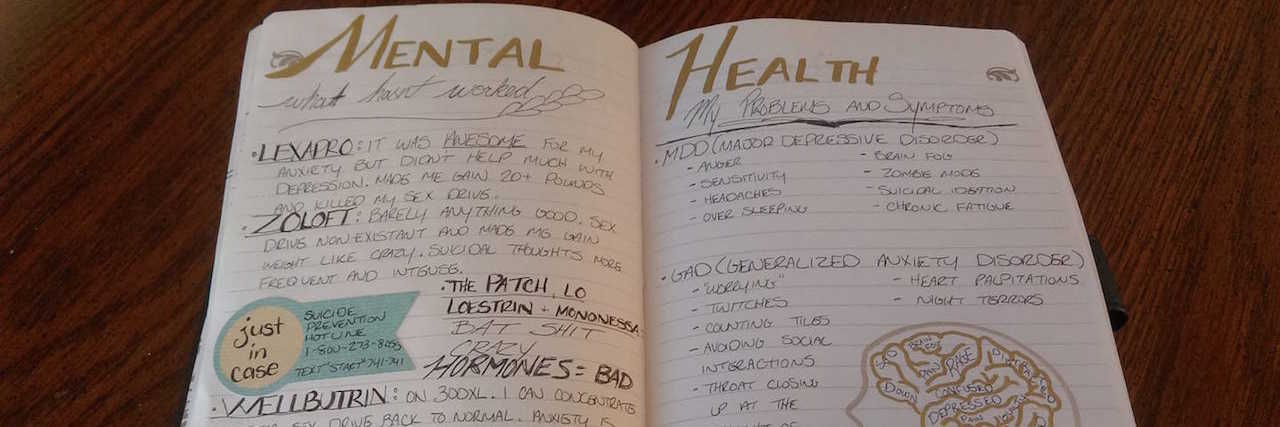 MENTAL
what hasn't worked
• LEXAPRO: IT WAS AWESOME FOR MY
ANXIETY BUT DIDN'T HELP MUCH WITH
DEPRESSION. MADE ME GAIN 20+ POUNDS
AND KILLED MY SEX DRIVE.
• ZOLOFT: BARELY ANYTHING GOOD. SEX
DRIVE NON-EXISTANT AND MADE ME GAIN
WEIGHT LIKE CRAZY. SUICIDAL THOUGHTS MORE
FREQUENT AND INTENSE.
• THE PATCH, LO
LOESTRIN + MONONESSA.
BAT SHIT
CRAZY
HORMONES = BAD
just
in
case
SUICIDE
PREVENTION
HOTLINE
1-800-273-8255
TEXT "START" 741-741
• WELLBUTRIN: ON 300XL. I CAN CONCENTRATE
SEX DRIVE BACK TO NORMAL. ANXIETY IS
HEALTH
My PROBLEMS AND SYMPTOMS
• MDD (MAJOR DEPRESSIVE DISORDER)
- ANGER
- SENSITIVITY
- HEADACHES
- OVER SLEEPING
- BRAIN FOG
- ZOMBIE MODE
- SUICIDAL IDEATION
- CHRONIC FATIGUE
• GAD (GENERALIZED ANXIETY DISORDER)
- "WORRYING"
- TWITCHES
- COUNTING TILES
- AVOIDING SOCIAL
INTERACTIONS
- THROAT CLOSING
UP AT THE
- HEART PALPITATIONS
- NIGHT TERRORS
SAD
BRAIN
FOG
RAGE
DOWN
CONFUSED
DEPRESSED
PAIN